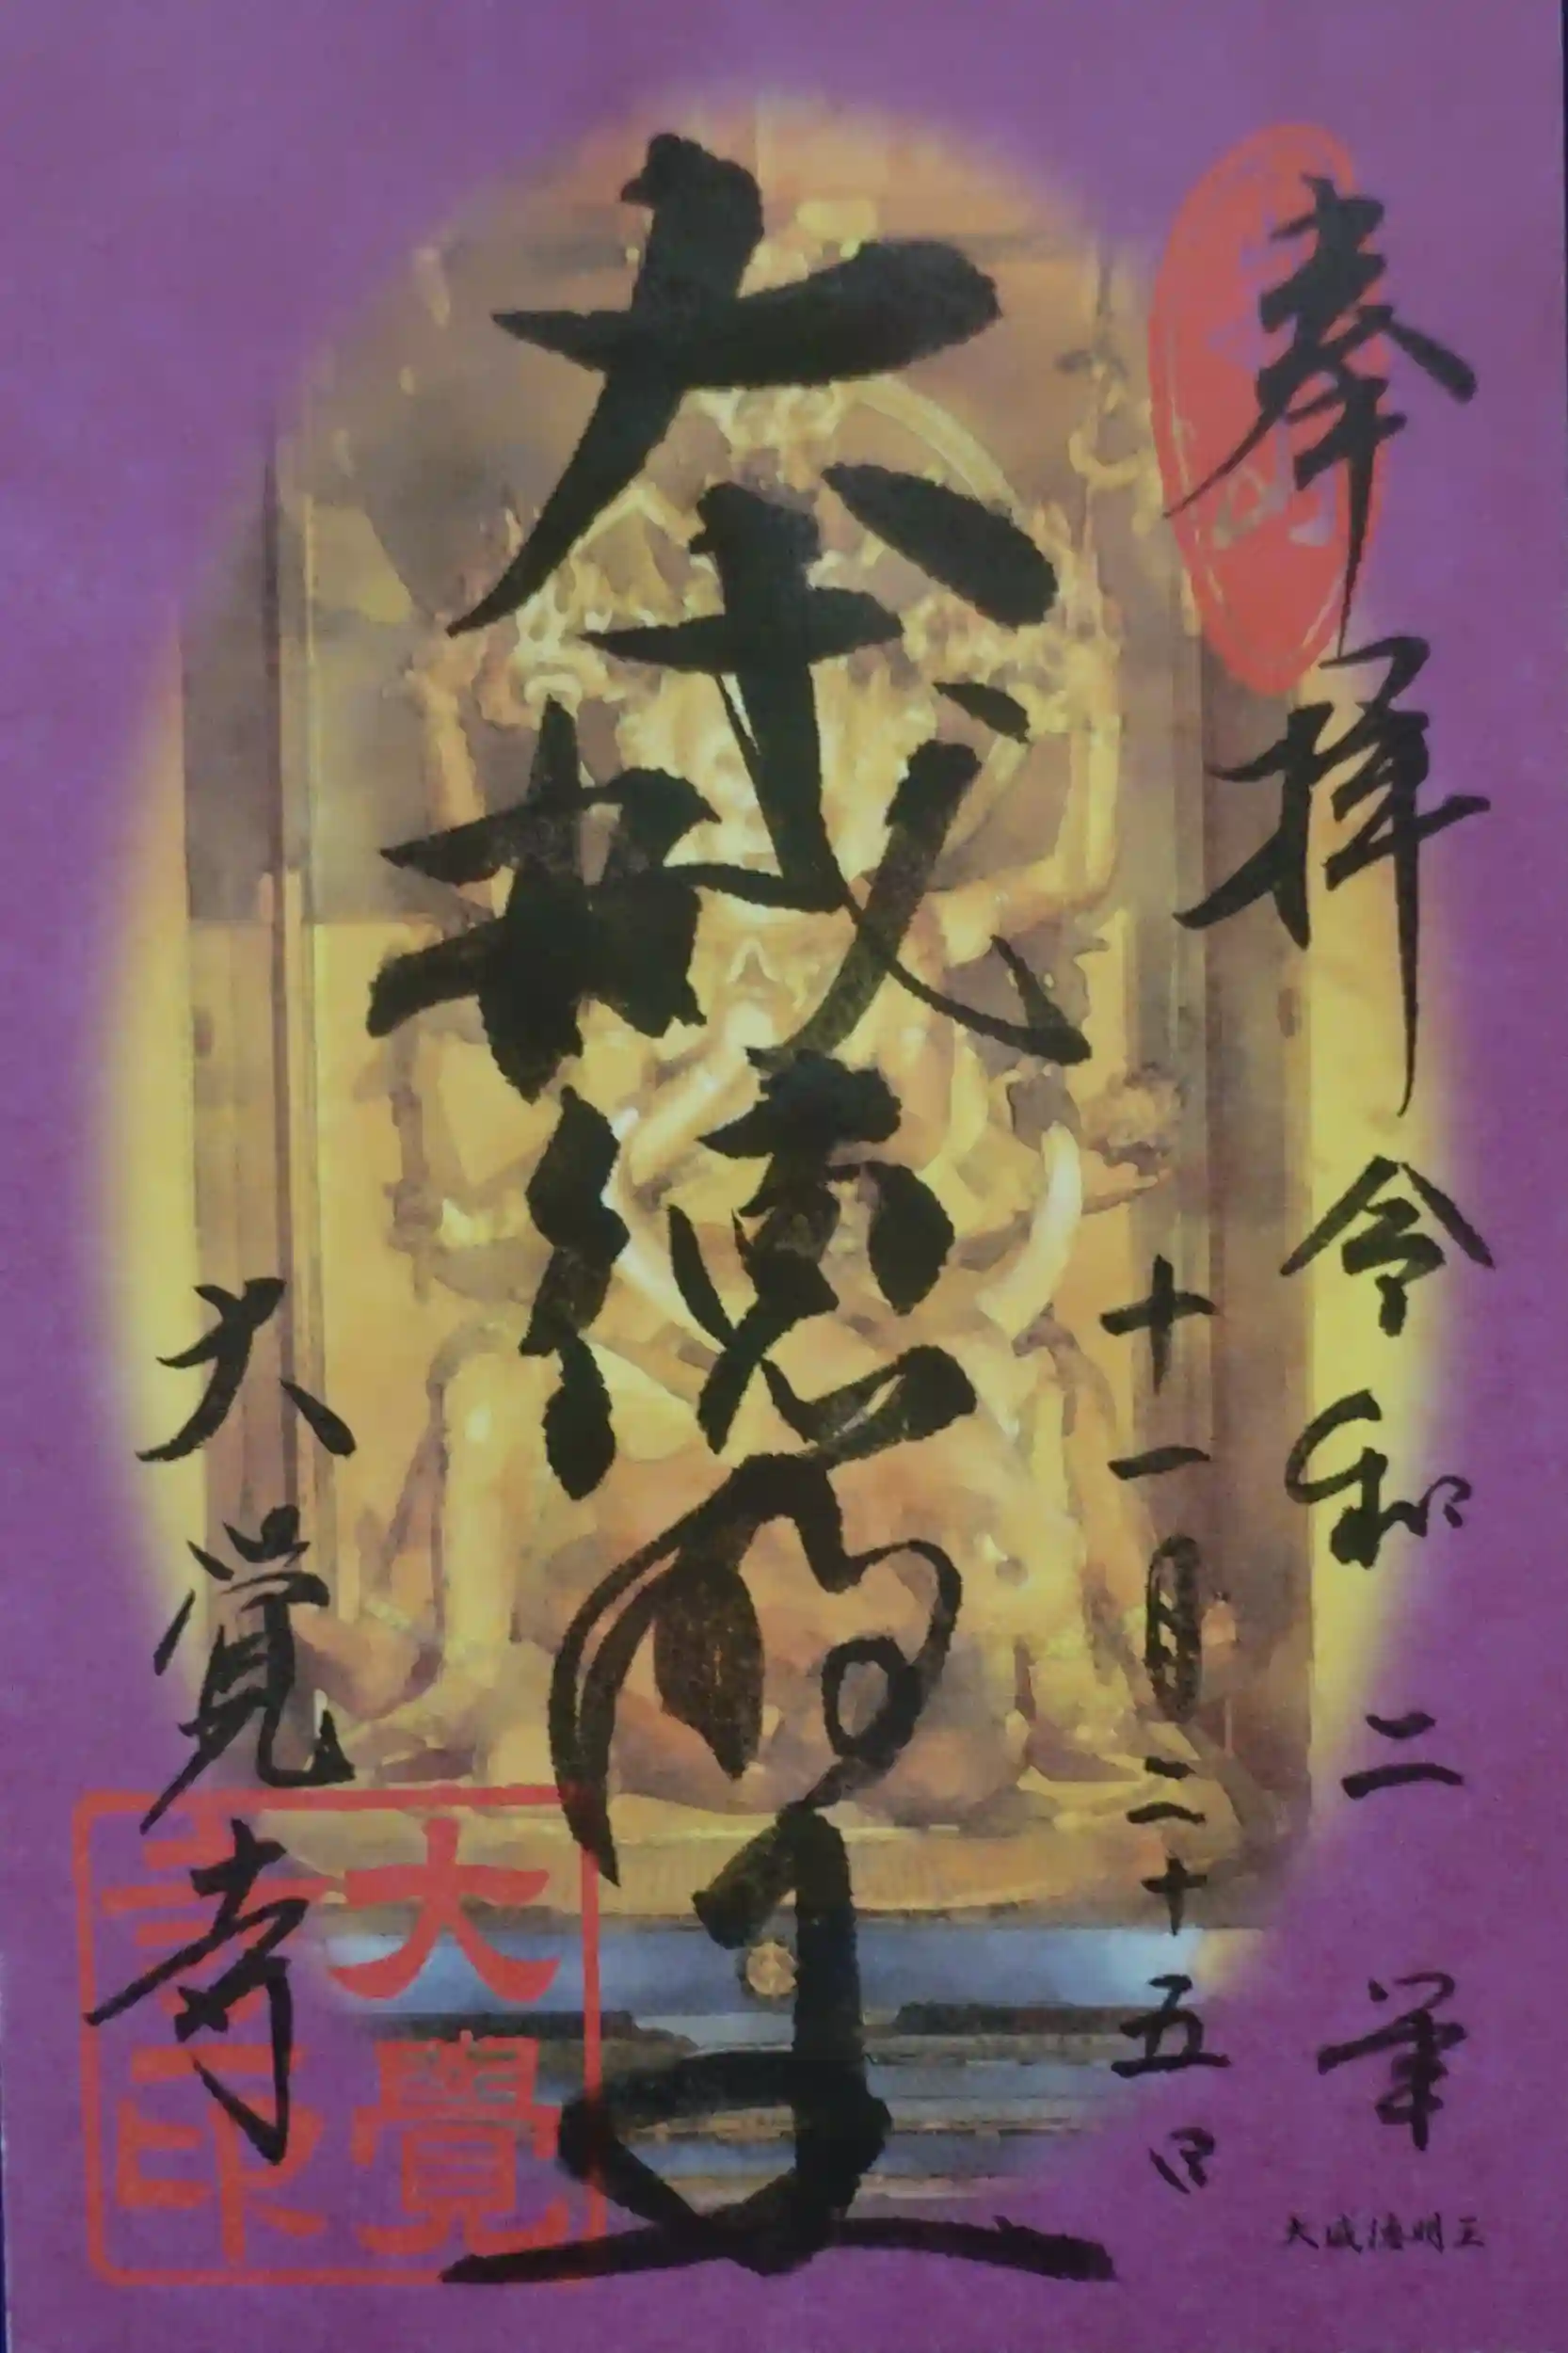 奉拝
令和二年
十一月二十五日
大威徳明王
大覚寺
大覺寺印
大威徳明王